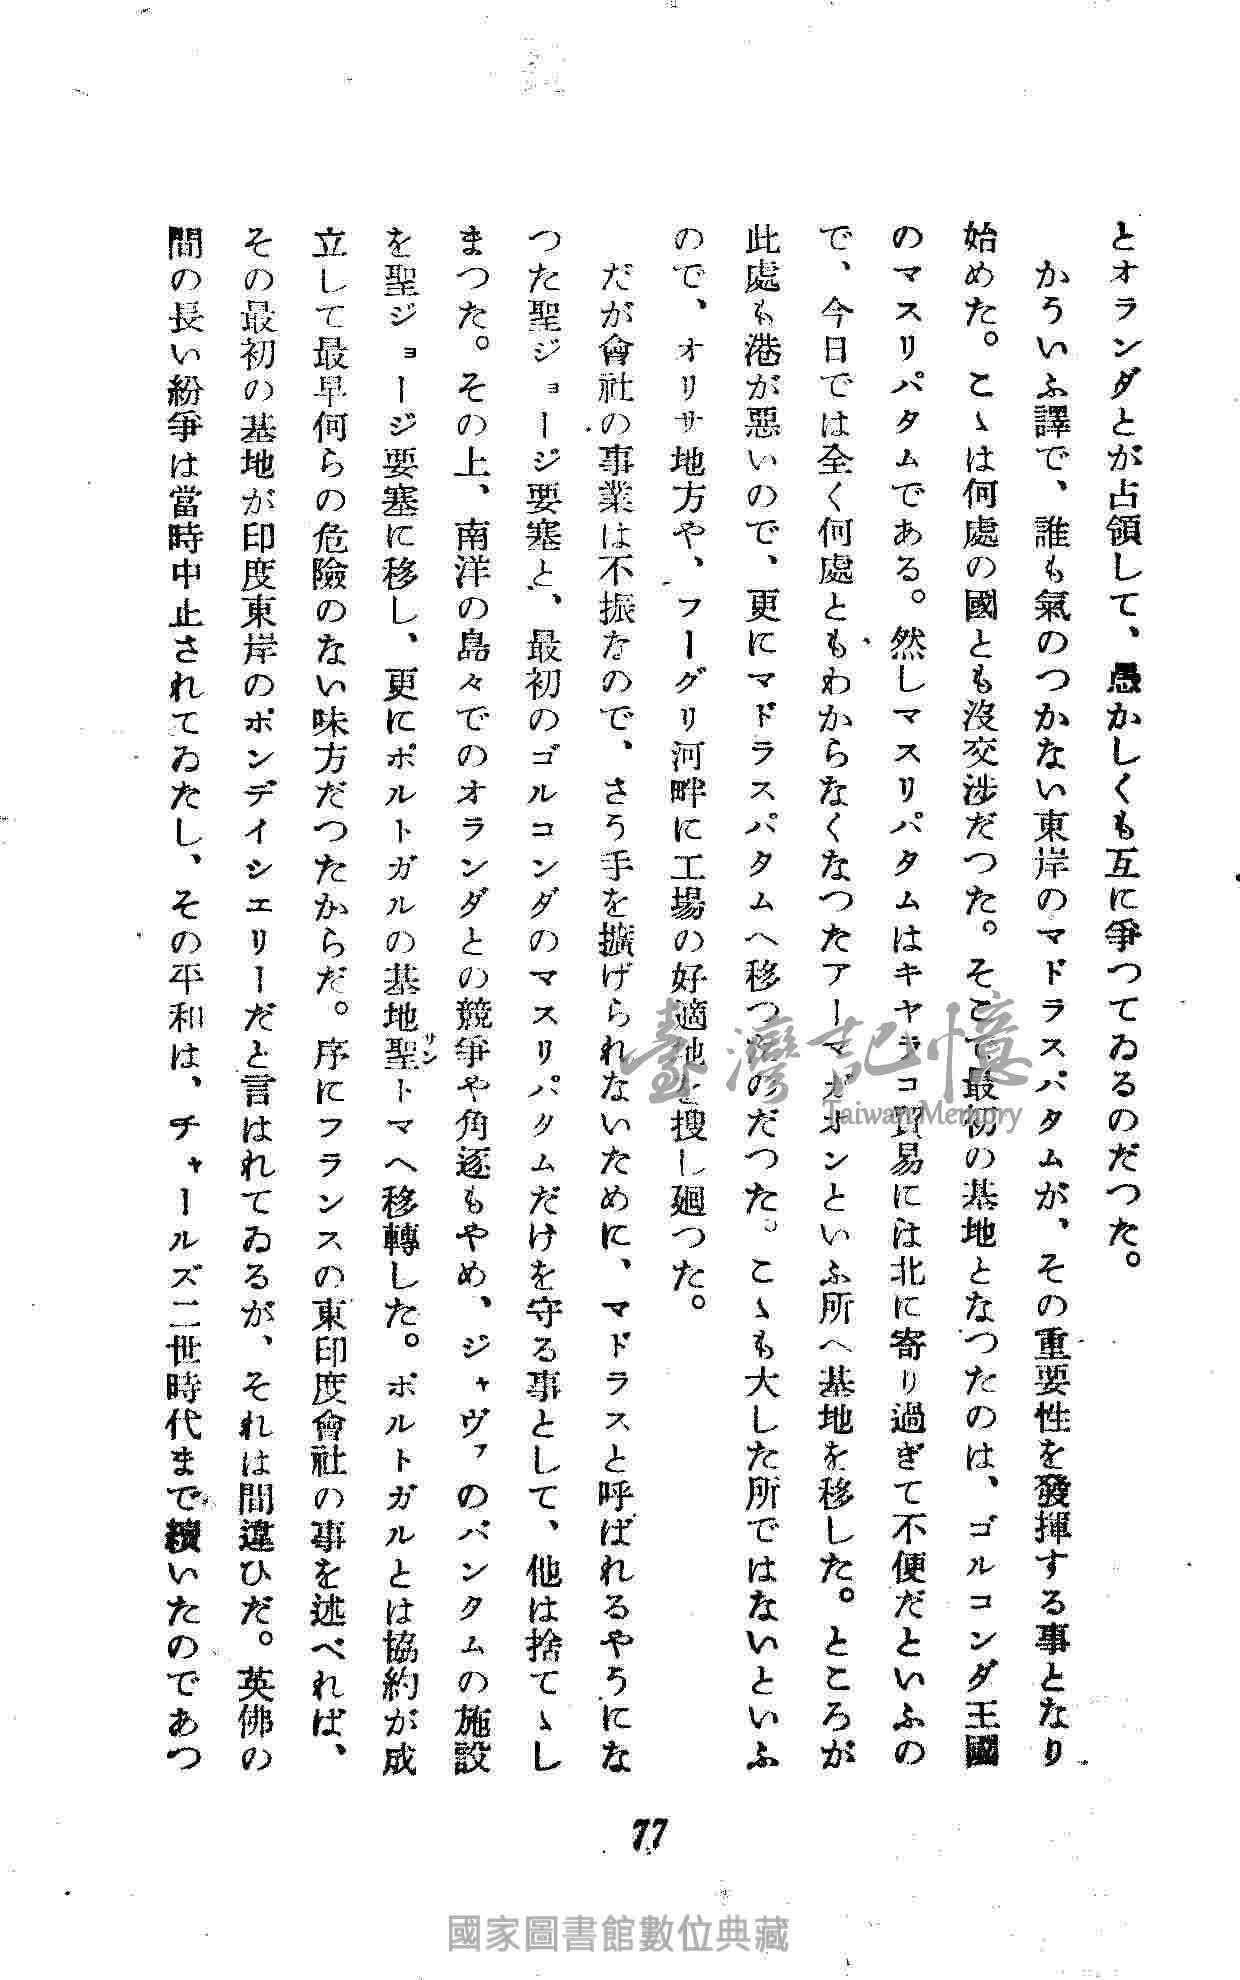 とオランダとが占領して、愚かしくも互に爭つてゐるのだつた。
かういふ譯で、誰も氣のつかない東岸のマドラスパタムが、その重要性を發揮する事となり
始めた。こゝは何處の國とも沒交涉だつた。そこで最初の基地となつたのは、ゴルコンダ王國
のマスリパタムである。然しマスリパタムはキヤラコ貿易には北に寄り過ぎて不便だといふの
で、今日では全く何處ともわからなくなつたアーマガオンといふ所へ基地を移した。ところが
此處も港が惡いので、更にマドラスパタムへ移つたのだつた。こゝも大した所ではないといふ
ので、オリサ地方や、フーグリ河畔に工場の好適地を搜し廻つた。
だが會社の事業は不振なので、さう手を擴げられないために、マドラスと呼ばれるやうにな
つた聖ジョージ要塞と、最初のゴルコンダのマスリパタムだけを守る事として、他は捨てゝし
まつた。その上、南洋の島々でのオランダとの競爭や角逐もやめ、ジャヴァのバンタムの施設
を聖ジョージ要塞に移し、更にポルトガルの基地聖サントマへ移轉した。ポルトガルとは協約が成
立して最早何らの危險のない味方だつたからだ。序にフランスの東印度會社の事を述べれば、
その最初の基地が印度東岸のポンデイシェリーだと言はれてゐるが、それは間違ひだ。英佛の
間の長い紛爭は當時中止されてゐたし、その平和は、チャールズ二世時代まで續いたのであつ
77
臺灣記憶
Taiwan Memory
國家圖書館數位典藏